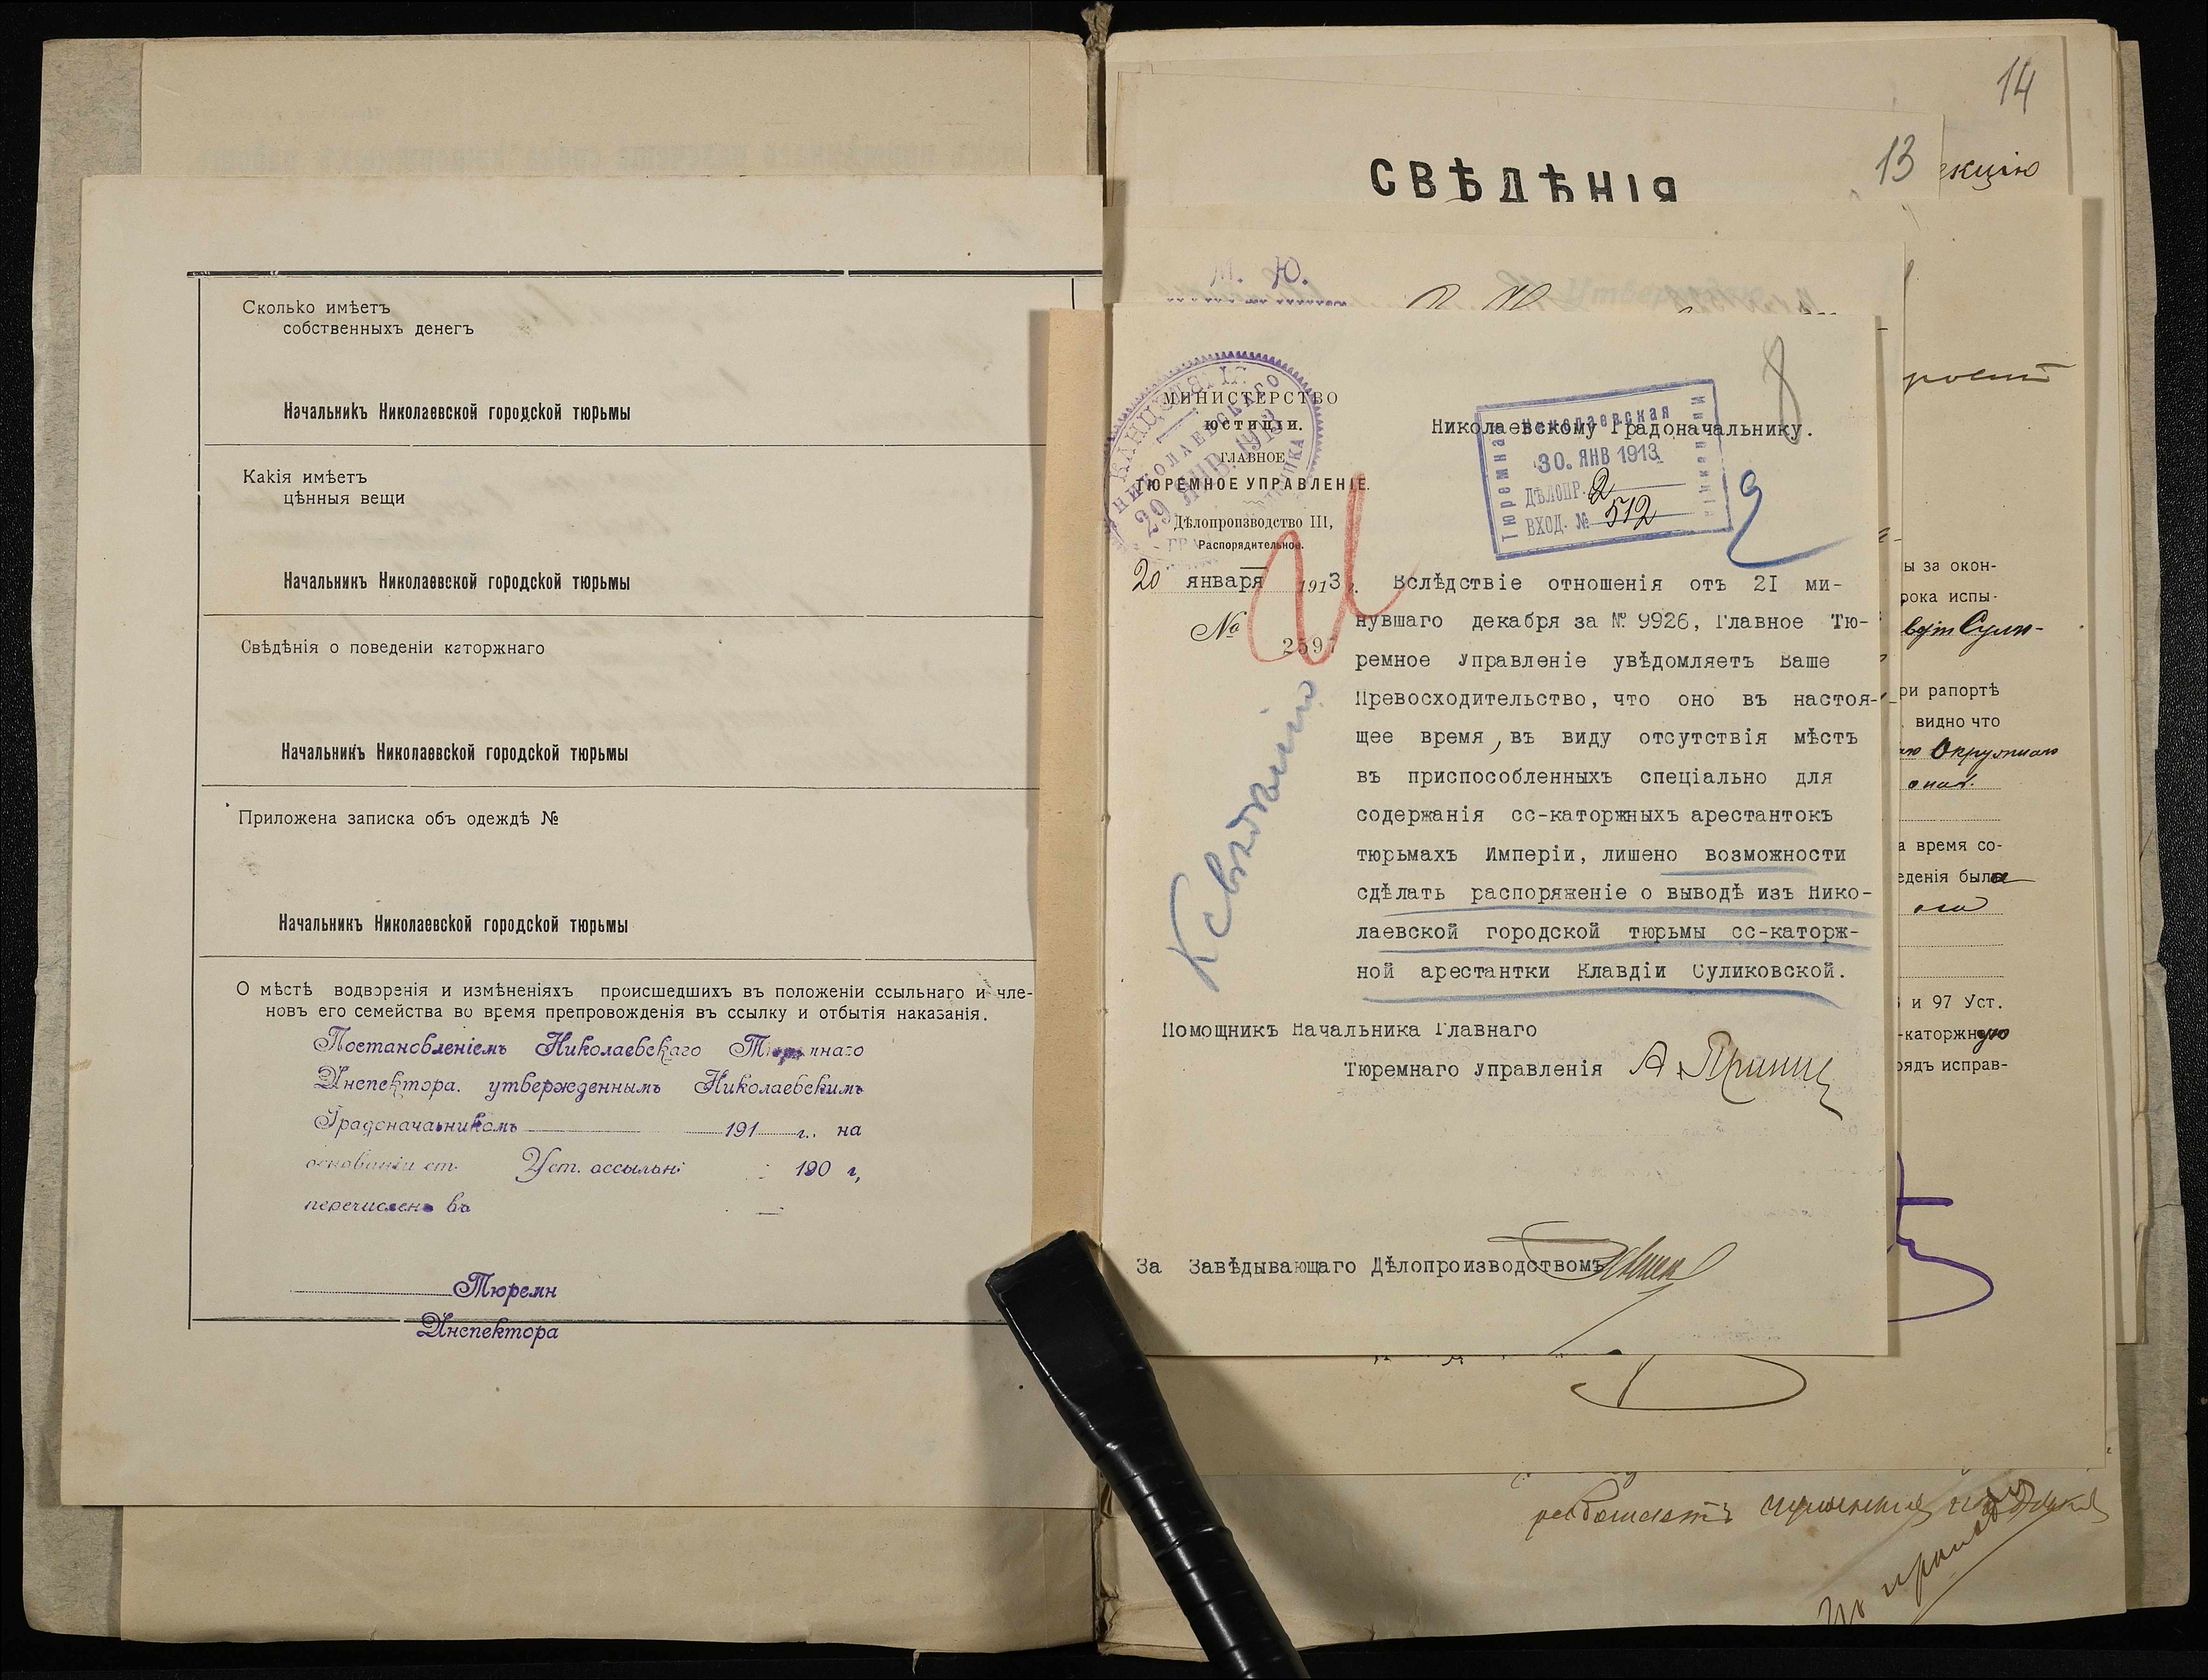 Сколько имѣетъ
собственныхъ денегъ
Начальникъ Николаевской городской тюрьмы
Какія имѣетъ
цѣнныя вещи
Начальникъ Николаевской городской тюрьмы
Свѣдѣнія о поведеніи каторжнаго
Начальникъ Николаевской городской тюрьмы
Приложена записка объ одеждѣ №
Начальникъ Николаевской городской тюрьмы
О мѣстѣ водворенія и измѣненіяхъ происшедшихъ въ положеніи ссыльнаго и чле-
новъ его семейства во время препровожденія въ ссылку и отбытія наказанія.
Постановленіемъ Николаевскаго Тюремнаго
Инспектора. утвержденнымъ Николаевскимъ
Градоначальникомъ 191 г., на
основаніи ст. Уст. о ссыльн: 190 г,
перечислень въ
Тюремн
Инспектора
14
13
екцію
СВѢДѢНІЯ
М. Ю.
8
КАНЦЕЛЯРІЯ
НИКОЛАЕВСКАГО
29 ЯНВ. 1913
МИНИСТЕРСТВО
ЮСТИЦІИ.
ГЛАВНОЕ
ТЮРЕМНОЕ УПРАВЛЕНІЕ.
Дѣлопроизводство III,
Распорядительное.
20 января 1913 г.
№ 2597
Николаевскому Градоначальнику.
Николаевская
Тюремная
30. ЯНВ 1913
ДѢЛОПР. 2
ВХОД. № 512
2
Вслѣдствіе отношенія отъ 2I ми-
нувшаго декабря за № 9926, Главное Тю-
ремное Управленіе увѣдомляетъ Ваше
Превосходительство, что оно въ настоя-
щее время, въ виду отсутствія мѣстъ
въ приспособленныхъ спеціально для
содержанія сс-каторжныхъ арестантокъ
тюрьмахъ Имперіи, лишено возможности
сдѣлать распоряженіе о выводѣ изъ Нико-
лаевской городской тюрьмы сс-каторж-
ной арестантки Клавдіи Суликовской.
Къ свѣдѣнію
Помощникъ Начальника Главнаго
Тюремнаго Управленія
За Завѣдывающаго Дѣлопроизводствомъ
ы за окон-
рока испы-
ри рапортѣ
видно что
Окружнаго
а время со-
еденія была
и 97 Уст.
-каторжную
рядъ исправ-
работаетъ